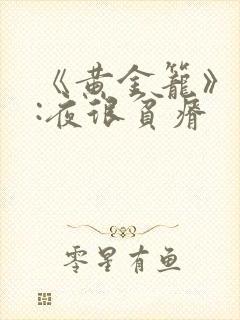 《黄金笼》
:夜很贫瘠
零星有鱼